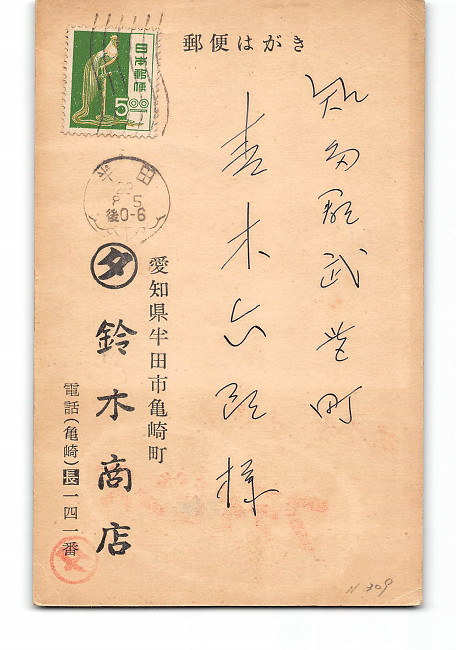 郵便はがき
日本郵便
5.00
半田
28
8.5
後0-6
知多郡武豊町
青木六郎様
愛知県半田市亀崎町
タ 鈴木商店
電話(亀崎)長一四一番
N 309